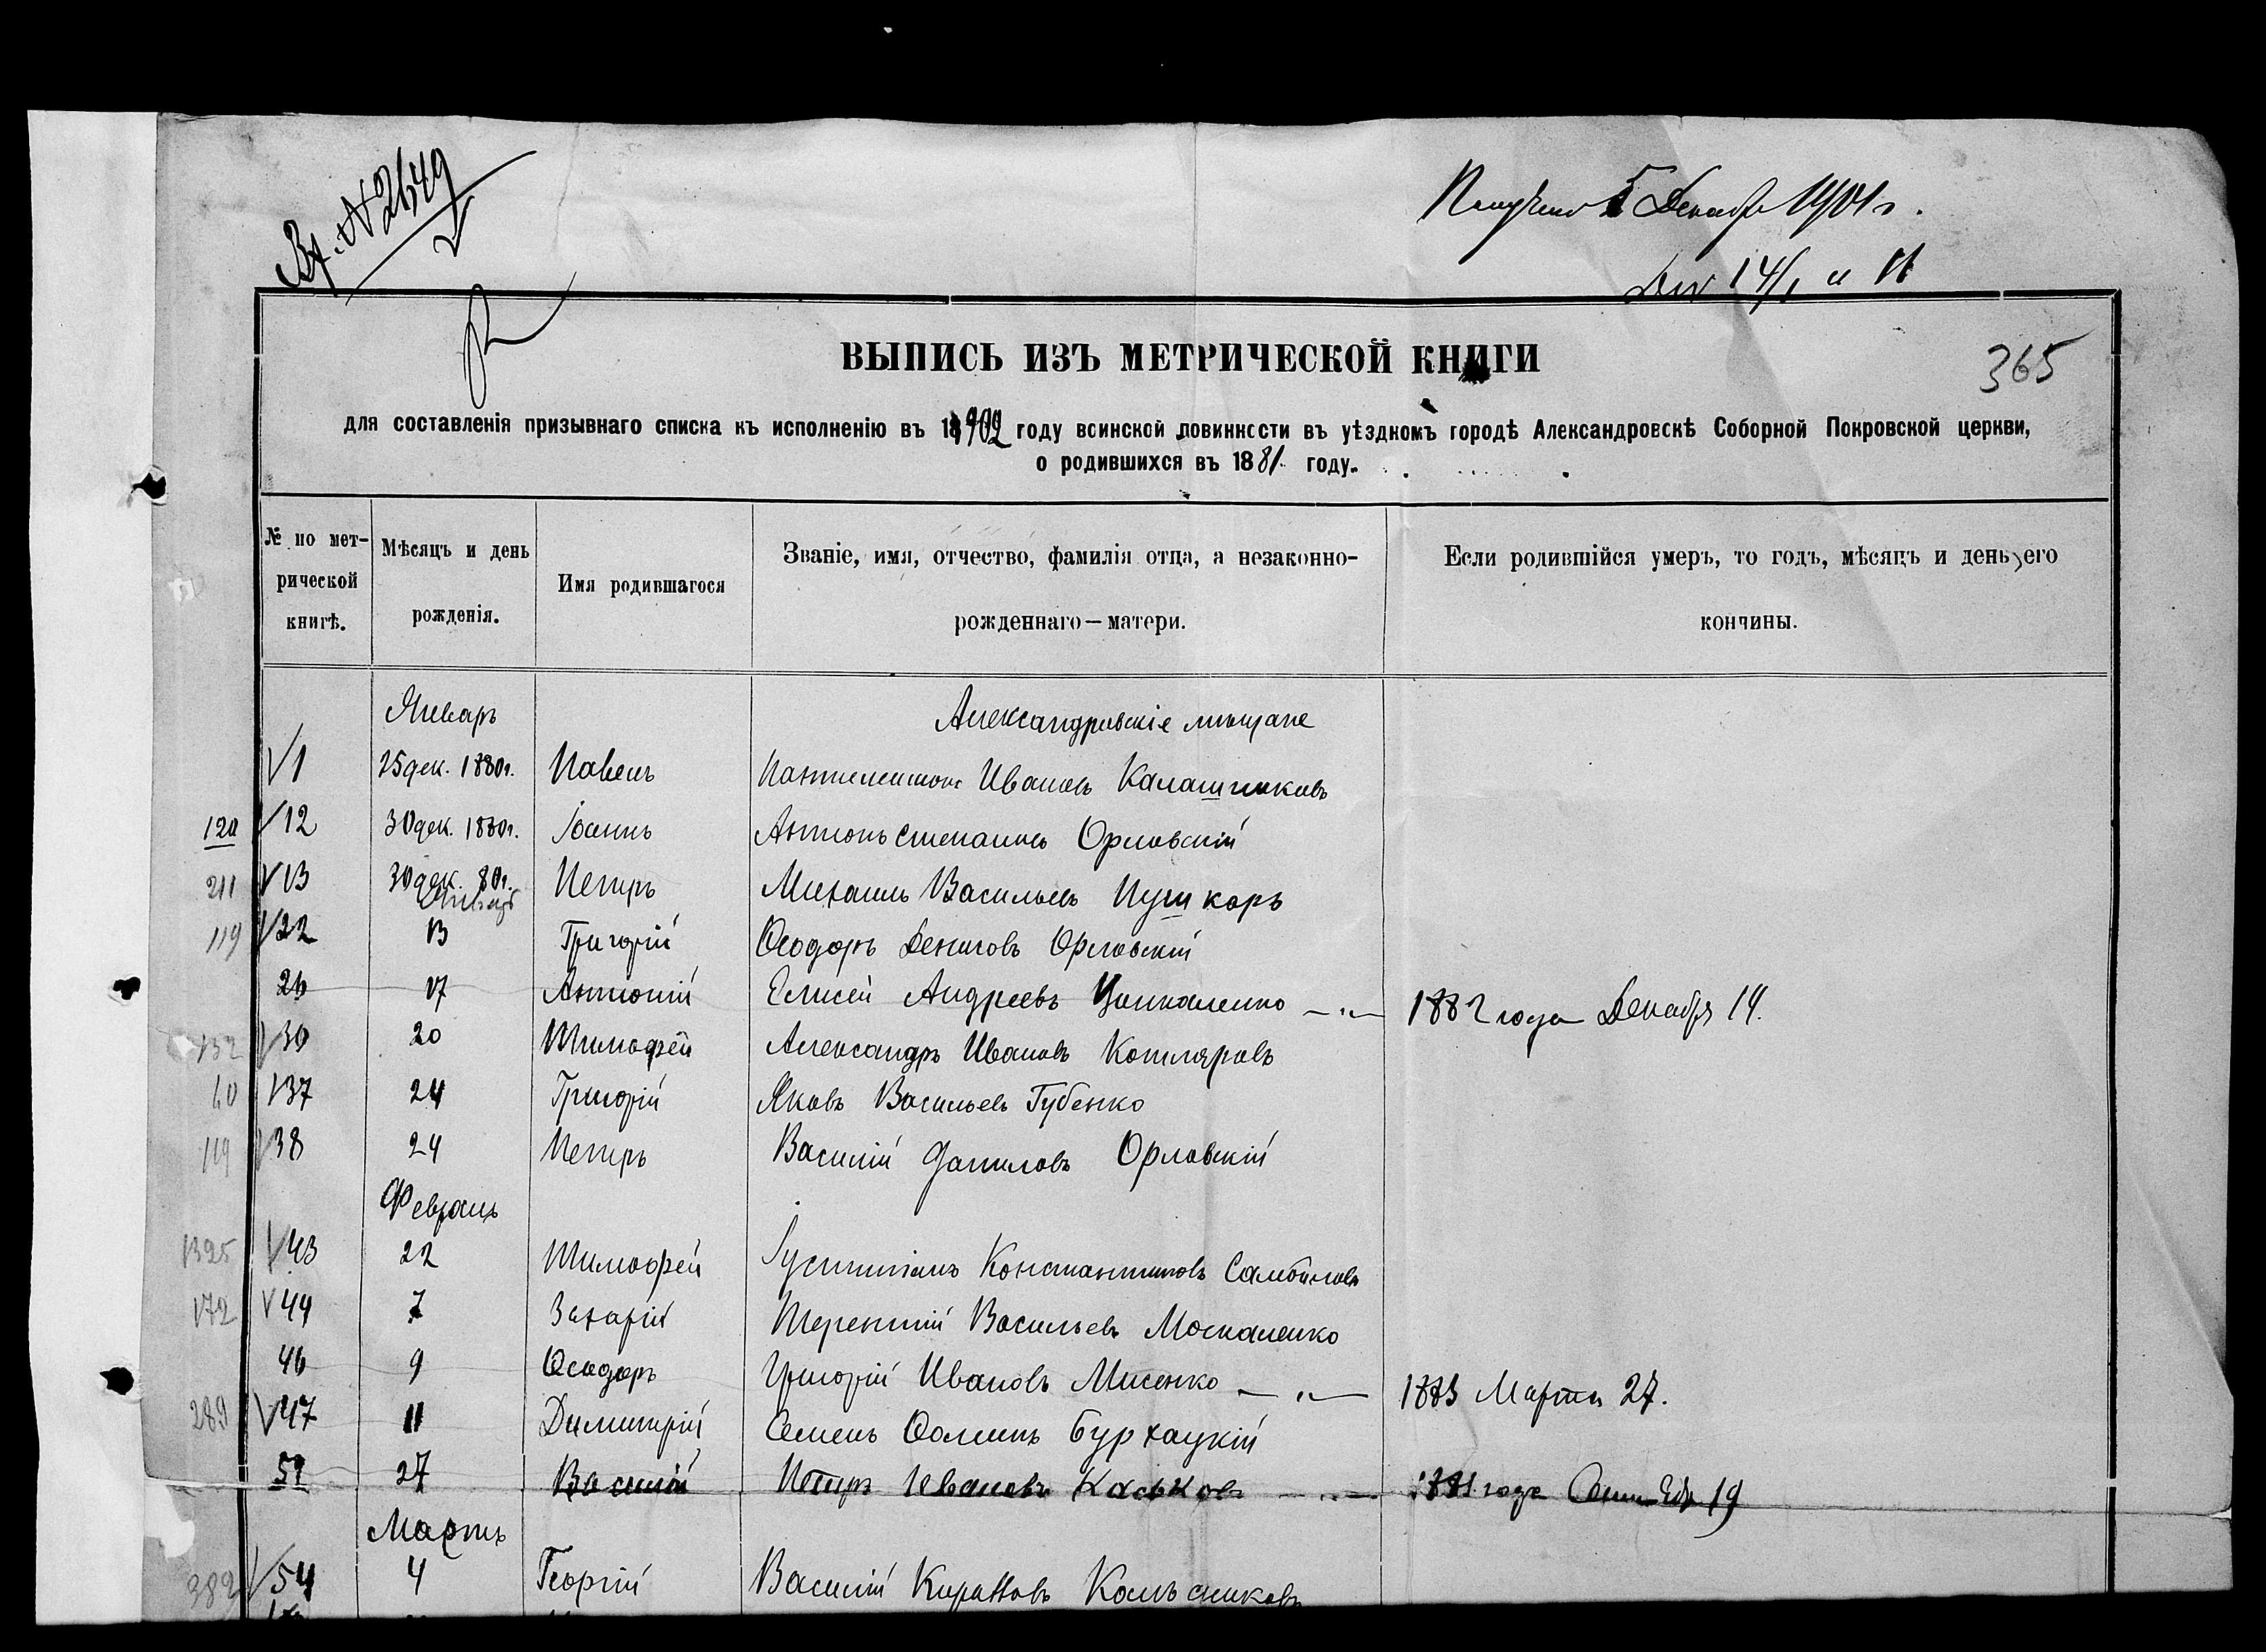 Вх. № 2649
Получено 5 Декабр 1901 г.
14/1
ВЫПИСЬ ИЗЪ МЕТРИЧЕСКОЙ КНИГИ
365
для составленія призывнаго списка къ исполненію въ 1902 году воинской повинности въ уѣздномъ городѣ Александровскѣ Соборной Покровской церкви,
о родившихся въ 1881 году.
№ по мет-рической книгѣ. Мѣсяцъ и день рожденія. Имя родившагося Званіе, имя, отчество, фамилія отца, а незаконно-рожденнаго—матери. Если родившійся умеръ, то годъ, мѣсяцъ и день его кончины.
Январь Александровскіе мѣщане
1 25 дек. 1880г. Павелъ Пантелеимонъ Ивановъ Калашниковъ
120 12 30 дек. 1880г. Іоаннъ Антонъ Степановъ Орловскій
211 13 30 дек. 80г. Петръ Михаилъ Васильевъ Пушкарь
Январь
119 22 13 Григорій Ѳеодоръ Денисовъ Орловскій
26 17 Антоній Елисей Андреевъ Цопкаленко 1882 года Декабря 14.
132 30 20 Тимофей Александръ Ивановъ Котляровъ
60 37 24 Григорій Яковъ Васильевъ Губенко
119 38 24 Петръ Василій Даниловъ Орловскій
Февраль
1325 43 22 Тимофей Іустиніанъ Константиновъ Самбиновъ
172 44 7 Захарій Терентій Васильевъ Москаленко
46 9 Ѳеодоръ Григорій Ивановъ Мисенко 1883 Марта 27.
289 47 11 Димитрій Семенъ Ѳоминъ Бурхацкій
52 27 Василій Петръ Ивановъ Каськовъ 1881 года 19
Мартъ
382 54 4 Георгій Василій Колѣсниковъ